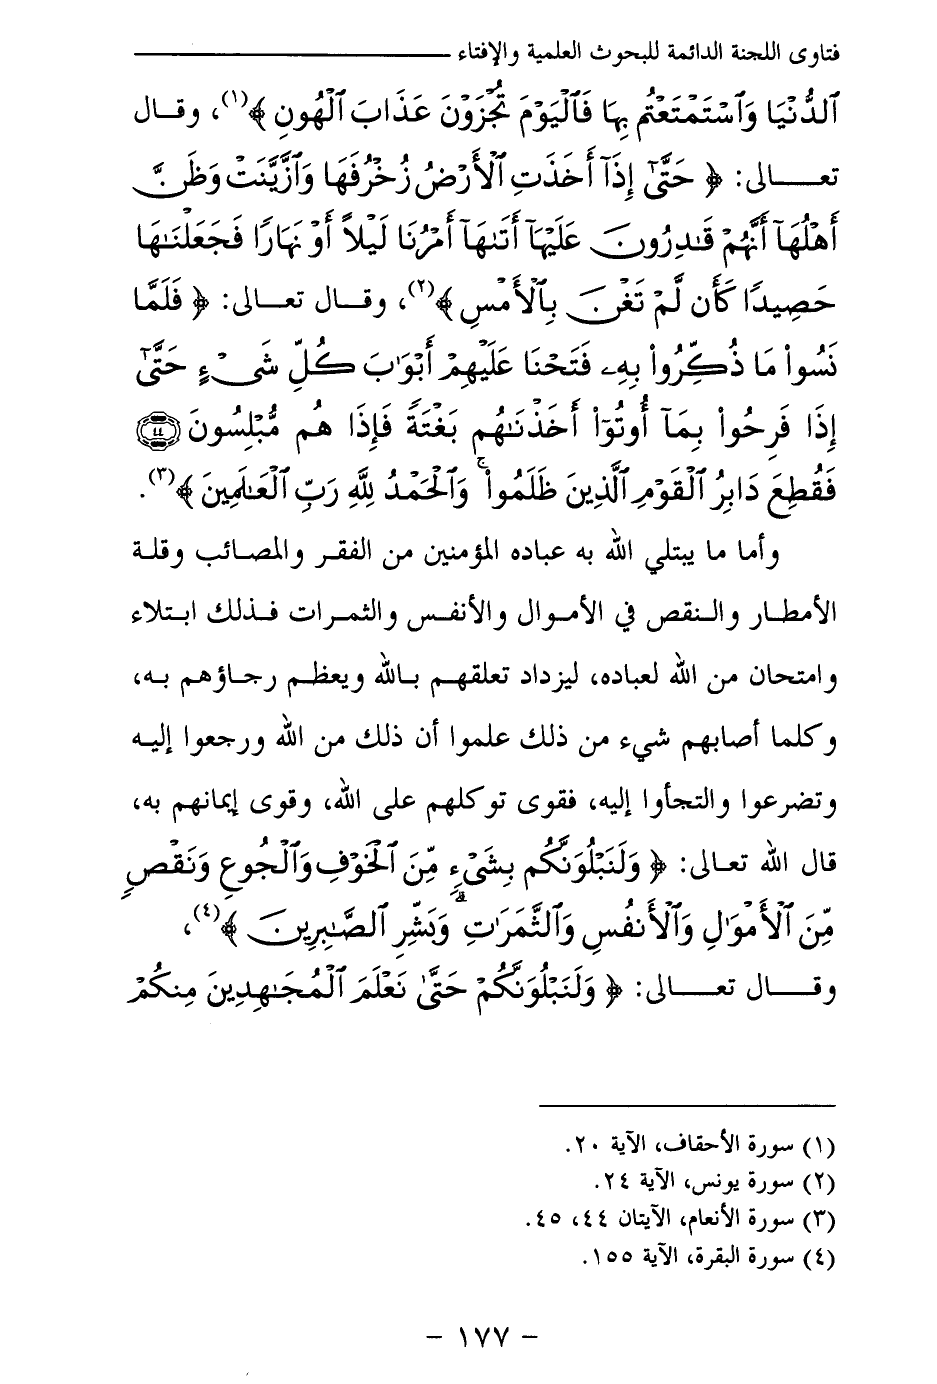 فتاوى اللجنة الدائمة للبحوث العلمية والإفتاء
ٱلدُّنۡيَا وَٱسۡتَمۡتَعۡتُم بِهَا فَٱلۡيَوۡمَ تُجۡزَوۡنَ عَذَابَ ٱلۡهُونِ ﴾(١)، وقال
تعالى: ﴿ حَتَّىٰٓ إِذَآ أَخَذَتِ ٱلۡأَرۡضُ زُخۡرُفَهَا وَٱزَّيَّنَتۡ وَظَنَّ
أَهۡلُهَآ أَنَّهُمۡ قَٰدِرُونَ عَلَيۡهَآ أَتَىٰهَآ أَمۡرُنَا لَيۡلًا أَوۡ نَهَارًا فَجَعَلۡنَٰهَا
حَصِيدًا كَأَن لَّمۡ تَغۡنَ بِٱلۡأَمۡسِ ﴾(٢)، وقال تعالى: ﴿ فَلَمَّا
نَسُواْ مَا ذُكِّرُواْ بِهِۦ فَتَحۡنَا عَلَيۡهِمۡ أَبۡوَٰبَ كُلِّ شَيۡءٍ حَتَّىٰٓ
إِذَا فَرِحُواْ بِمَآ أُوتُوٓاْ أَخَذۡنَٰهُم بَغۡتَةٗ فَإِذَا هُم مُّبۡلِسُونَ ٤٤
فَقُطِعَ دَابِرُ ٱلۡقَوۡمِ ٱلَّذِينَ ظَلَمُواْۚ وَٱلۡحَمۡدُ لِلَّهِ رَبِّ ٱلۡعَٰلَمِينَ ﴾(٣).
وأما ما يبتلي الله به عباده المؤمنين من الفقر والمصائب وقلة
الأمطار والنقص في الأموال والأنفس والثمرات فذلك ابتلاء
وامتحان من الله لعباده، ليزداد تعلقهم بالله ويعظم رجاؤهم به،
وكلما أصابهم شيء من ذلك علموا أن ذلك من الله ورجعوا إليه
وتضرعوا والتجأوا إليه، فقوى توكلهم على الله، وقوى إيمانهم به،
قال الله تعالى: ﴿ وَلَنَبۡلُوَنَّكُم بِشَيۡءٖ مِّنَ ٱلۡخَوۡفِ وَٱلۡجُوعِ وَنَقۡصٖ
مِّنَ ٱلۡأَمۡوَٰلِ وَٱلۡأَنفُسِ وَٱلثَّمَرَٰتِۗ وَبَشِّرِ ٱلصَّٰبِرِينَ ﴾(٤)،
وقال تعالى: ﴿ وَلَنَبۡلُوَنَّكُمۡ حَتَّىٰ نَعۡلَمَ ٱلۡمُجَٰهِدِينَ مِنكُمۡ
(١) سورة الأحقاف، الآية ٢٠.
(٢) سورة يونس، الآية ٢٤.
(٣) سورة الأنعام، الآيتان ٤٤، ٤٥.
(٤) سورة البقرة، الآية ١٥٥.
- ١٧٧ -